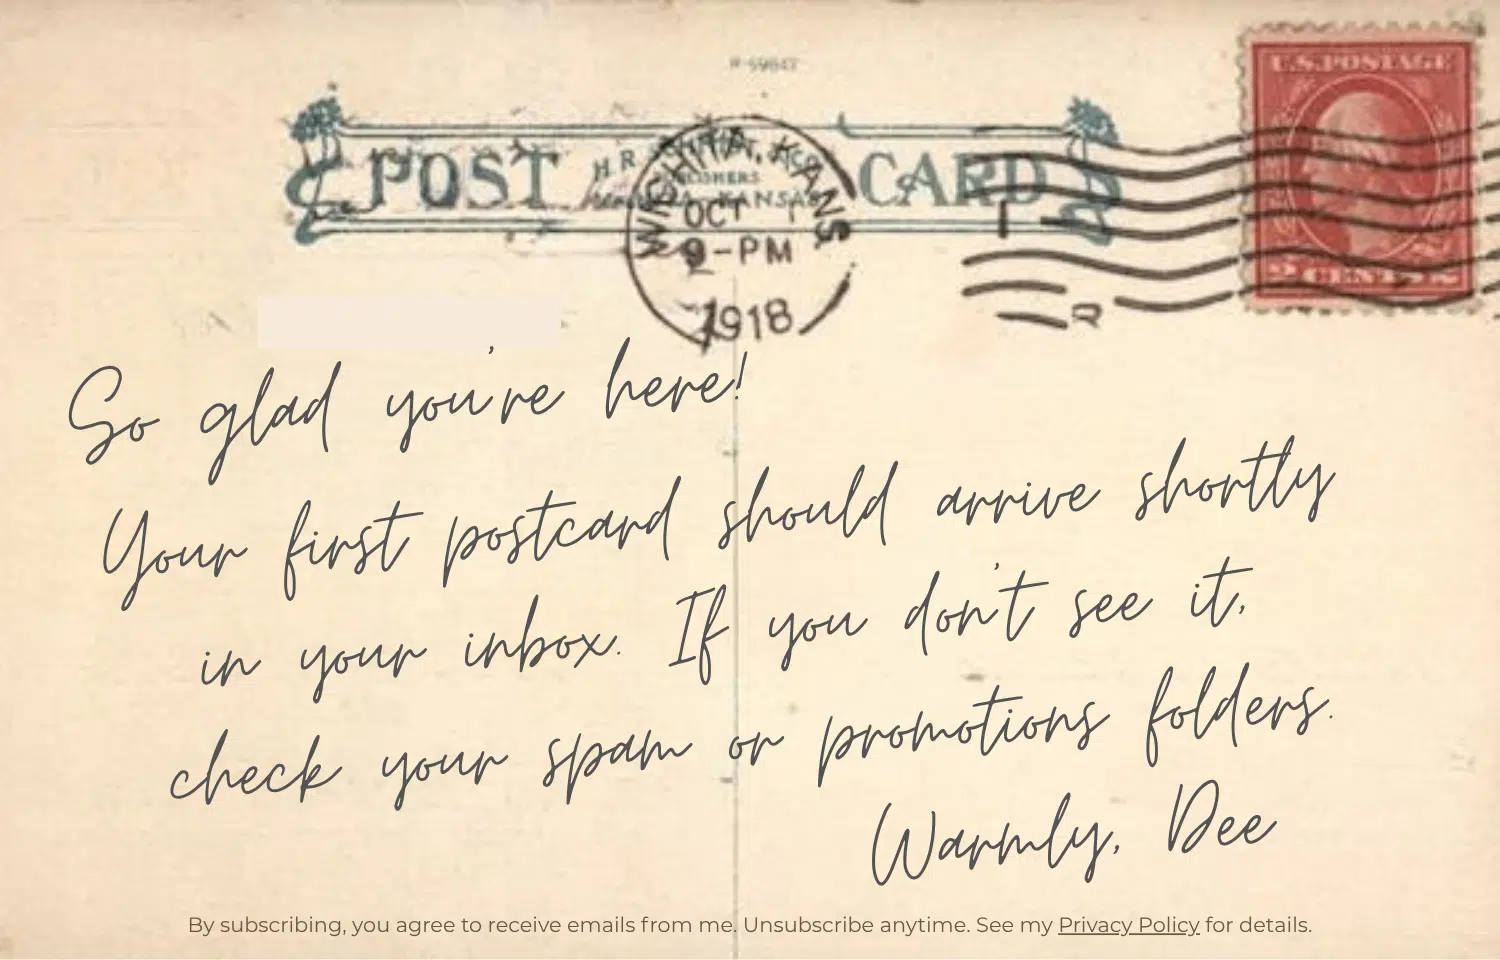 R-59647
U.S.POSTAGE
POST CARD
H R
KANSAS
WICHITA, KANS.
OCT 1
9-PM
1918
2 CENTS 2
So glad you're here!
Your first postcard should arrive shortly
in your inbox. If you don't see it,
check your spam or promotions folders.
Warmly, Dee
By subscribing, you agree to receive emails from me. Unsubscribe anytime. See my Privacy Policy for details.